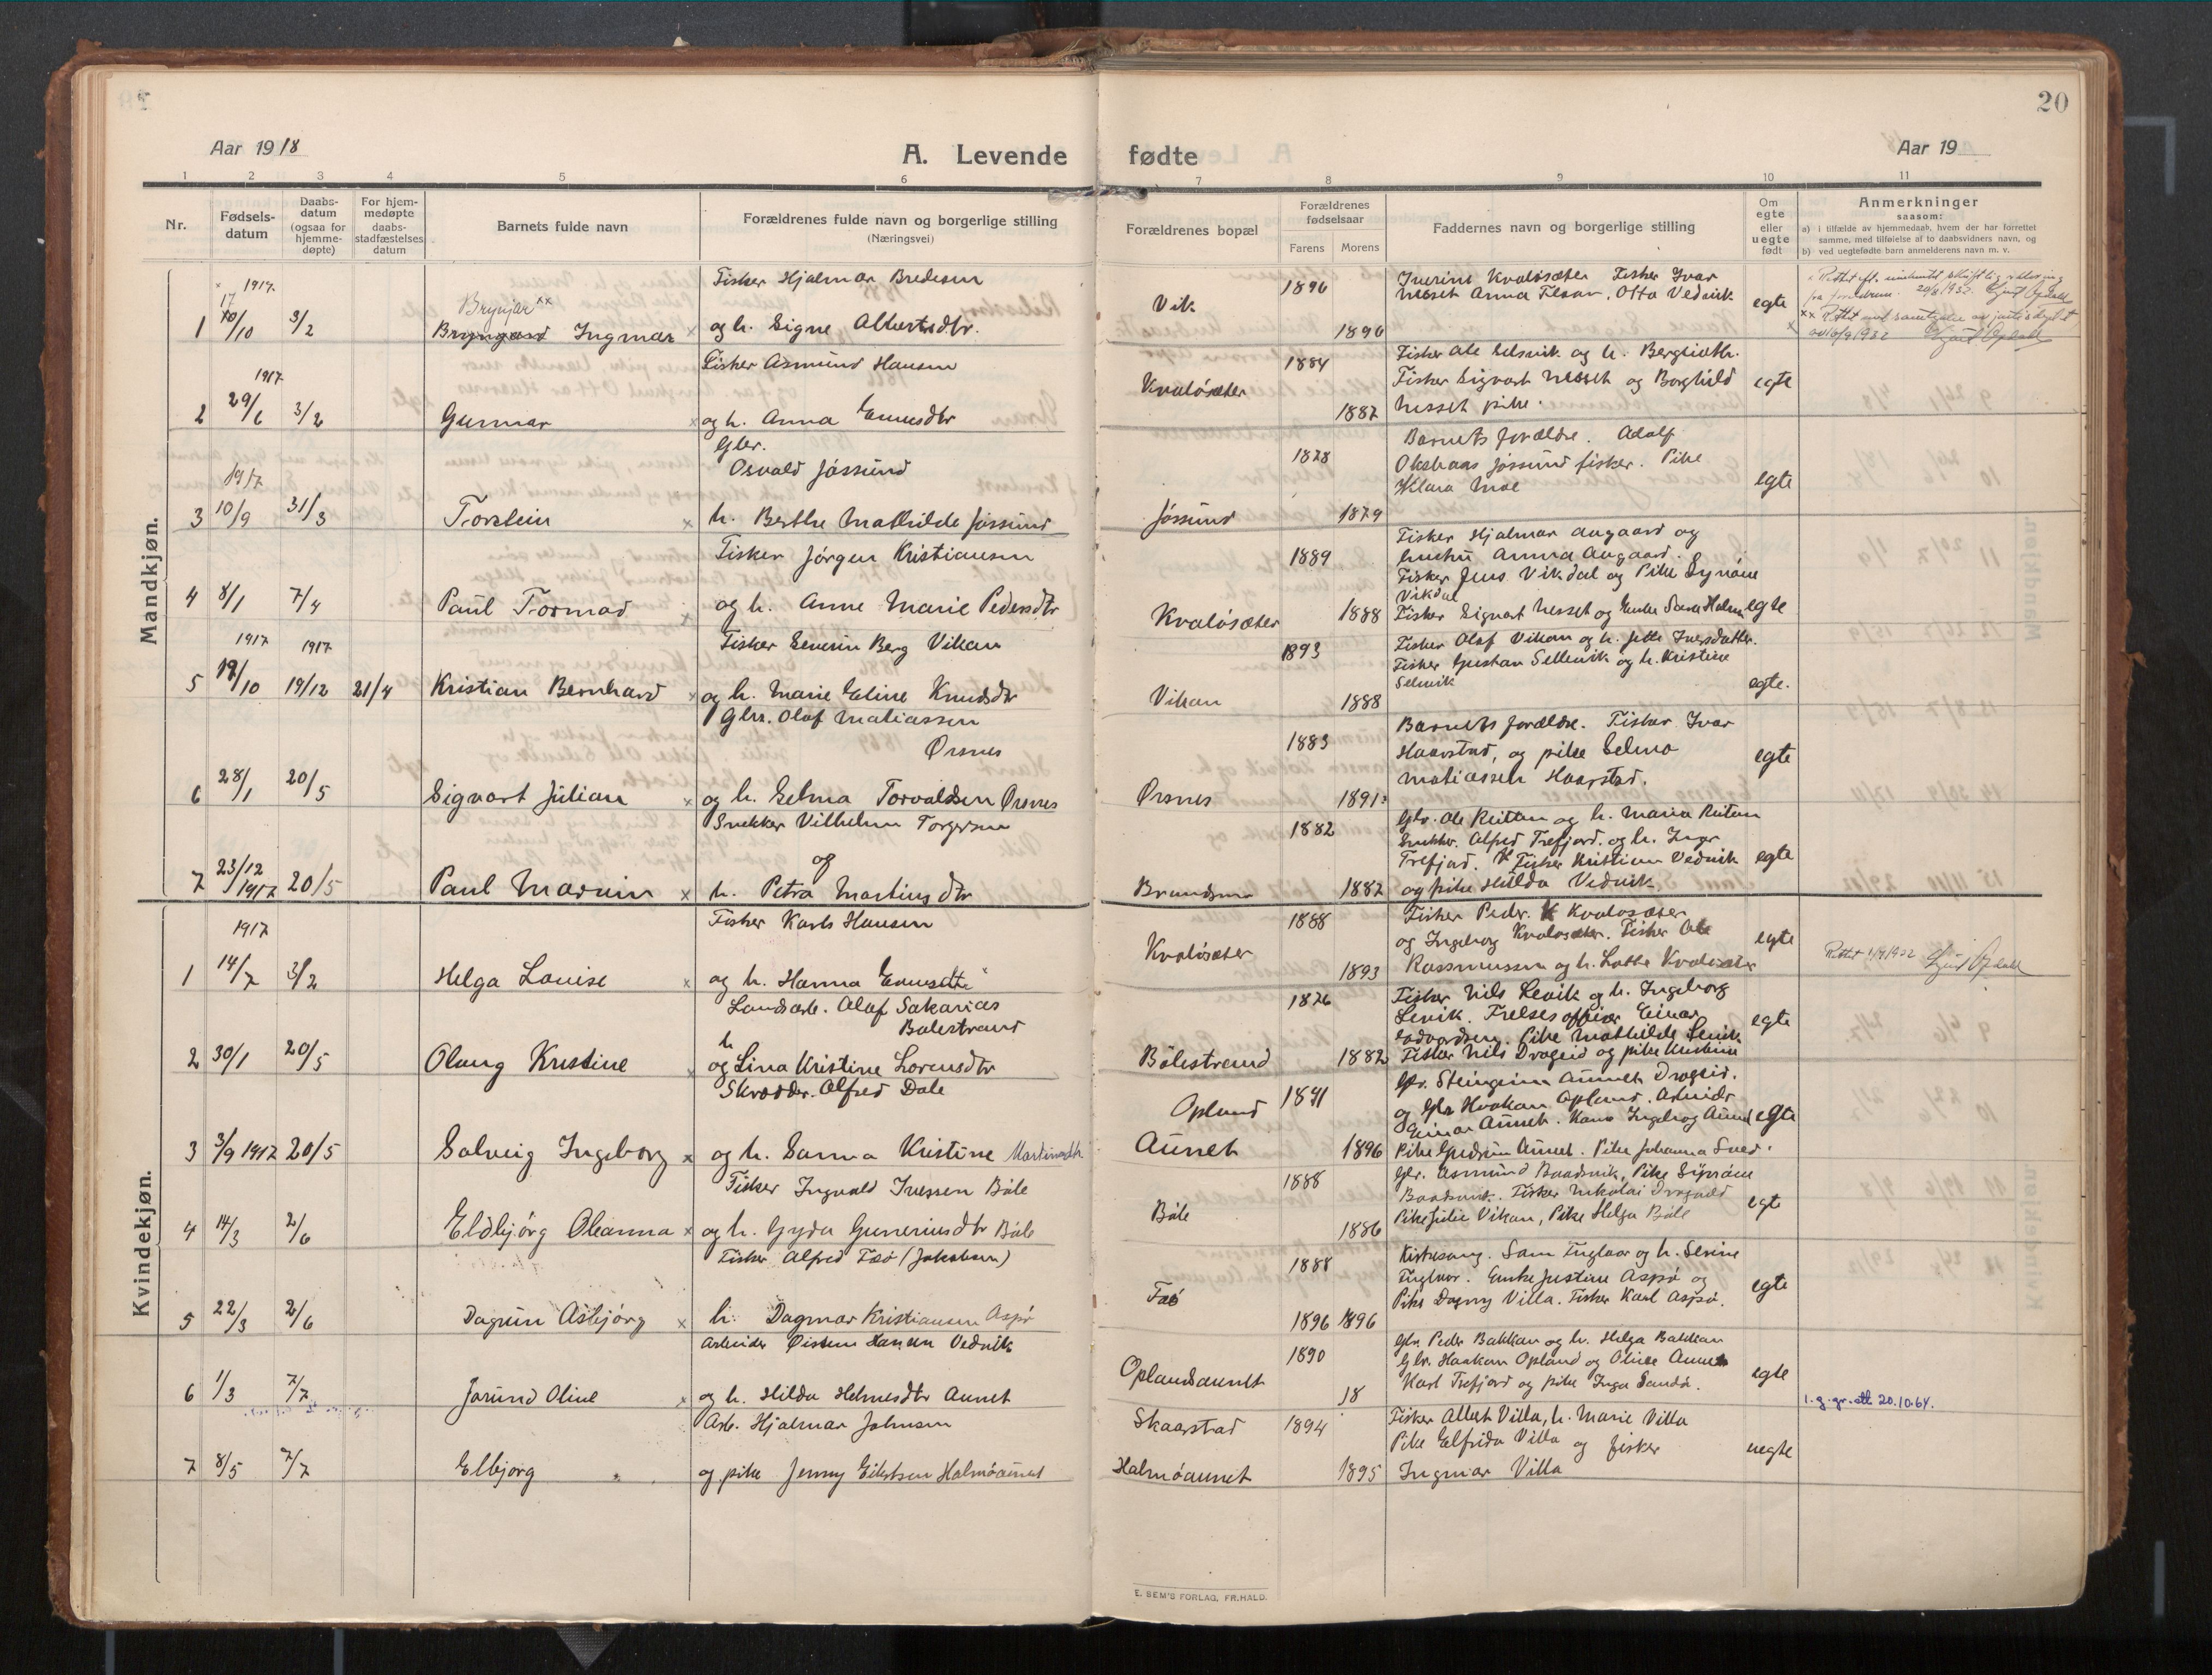 20
Aar 1918
A. Levende fødte
Aar 19
1 2 3 4 5 6 7 8 9 10 11
Nr.
Fødsels-
datum
Daabs-
datum
(ogsaa for
hjemme-
døpte)
For hjem-
medøpte
daabs-
stadfæstelses
datum
Barnets fulde navn
Forældrenes fulde navn og borgerlige stilling
(Næringsvei)
Forældrenes bopæl
Forældrenes
fødselsaar
Farens Morens
Faddernes navn og borgerlige stilling
Om
egte
eller
uegte
født
Anmerkninger
saasom:
a) i tilfælde av hjemmedaab, hvem der har forrettet
samme, med tilføielse af to daabsvidners navn, og
b) ved uegtefødte barn anmelderens navn m. v.
Mandkjøn.
1917
17/10
1 3/2 Brynjar xx Ingmar
Fisker Hjalmar Bredesen
og h. Signe Albertsdtr.
Vik 1896 1890
Fisker Ivar
Nesset Anna Otto Vedvik
egte
20/8 1932
xx Rettet
1917
2 29/6 3/2 Gunnar
Fisker Asmund Hansen
og h. Anna
Kvaløsæter 1884 1887
Fisker Ole og h.
Fisker Sigvart Nesset og Borghild
Nesset pike.
egte
1917
3 10/9 31/3 Torstein
Gbr.
Osvald Jøssund
h. Berthe Mathilde Jøssund
Jøssund 1878 1879
Barnets forældre. Adolf
Jøssund fisker. Pike
Klara Moe
egte
4 8/1 7/4 Paul Tormod
Fisker Jørgen Kristiansen
og h. Anne Marie Pedersdtr
Kvaløsæter 1889 1888
Fisker Hjalmar Augaard og
Anna Augaard.
Fisker Jens Vikdal og Pike
Vikdal
Fisker Sigvart Nesset og Enke Sara
egte
1917 1917
5 19/10 19/12 21/4 Kristian Bernhard
Fisker Severin Berg Vikan
og h. Marie Eline Knudsdtr
Vikan 1893 1888
Fisker Olaf Vikan og h. Jette
Fisker Gustav Sellevik og h. Kristine
egte.
6 28/1 20/5 Sigvart Julian
Gbr. Olaf Matiassen
Ørsnes
og h. Selma Torvaldsen Ørsnes
Ørsnes 1883 1891
Barnets forældre. Fisker Ivar
Haarstad, og pike Selma
Matiassen Haarstad.
egte
7 23/12 1917 20/5 Paul Marvin
Snekker Vilhelm Torgersen
og
h. Petra Martinsdtr
1882 1882
Gbr. Ole Reitan og h. Maria Reitan
Snekker Alfred Trefjord. og h. Inga
Trefjord. Fisker Kristian Vedvik
og pike Hilda Vedvik.
egte
Kvindekjøn.
1917
1 14/7 3/2 Helga Louise
Fisker Karls Hansen
og h. Hanna
Kvaløsæter 1888 1893
Fisker Peder. Kvaløsæter
og Ingeborg Kvaløsæter. Fisker Ole
Rassmussen og h. Lotte Kvaløsæter
egte
Rettet 1/9 1932
2 30/1 20/5 Olaug Kristine
Olaf Sakarias
Bølestrand
h
og Lina Kristine Lorensdtr
Bølestrand 1876 1882
Fisker Nils Levik og h. Ingeborg
Levik. Frelsesofficer Einar
Edvardsen. Pike Mathilde Levik
Fisker Nils Drageid og pike
egte
3 3/9 1917 20/5 Solveig Ingeborg
Skrædder. Alfred Dale
og h. Sanna Kristine Martinsdtr
Opland
Aunet 1891 1896
Gbr. Aunet Drageid.
og Gbr Haakon Opland. Arbeider
Einar Aunet. Kone Ingeborg Aunet
Pike Gudrun Aunet. Pike Johanna
egte
4 14/3 2/6 Eldbjørg Oleanna
Fisker Ingvald Iversen Bøle
og h. Gyda Guneriusdtr Bøle
Bøle 1888 1886
Gbr. Asmund Baadsvik, Pike
Baadsvik. Fisker Nikolai
Pike Julie Vikan, Pike Helga Bøle
egte
5 22/3 2/6 Dagrun Asbjørg
Fisker Alfred Faø (Jakobsen)
h. Dagmar Kristiansen Aspø
Faø 1888 1896 1896
Kirkesang. Sam Fuglaar og h. Sevine
Fuglaar. Enke Justine Aspø og
Pike Dagny Villa. Fisker Karl Aspø.
egte
6 1/3 7/7 Jorund Oline
Arbeider Øistein Hansen Vedvik
og h. Hilda Helmesdtr Aunet
Oplandsaunet 1890 18
Gbr. Peder Bakkan og h. Helga Bakkan
Gbr. Haakon Opland og Olise Aunet
Karl Trefjord og pike Inga Sandø.
egte
1. g. gr. att 20.10.64.
7 8/5 7/7 Elbjørg "
Arb. Hjalmar Johnsen
og pike Jenny Eilertsen Halmøaunet
Skaarstad 1894
Halmøaunet 1895
Fisker Albert Villa, h. Marie Villa
Pike Elfrida Villa og fisker
Ingmar Villa
uegte
E. SEM'S FORLAG, FR.HALD.